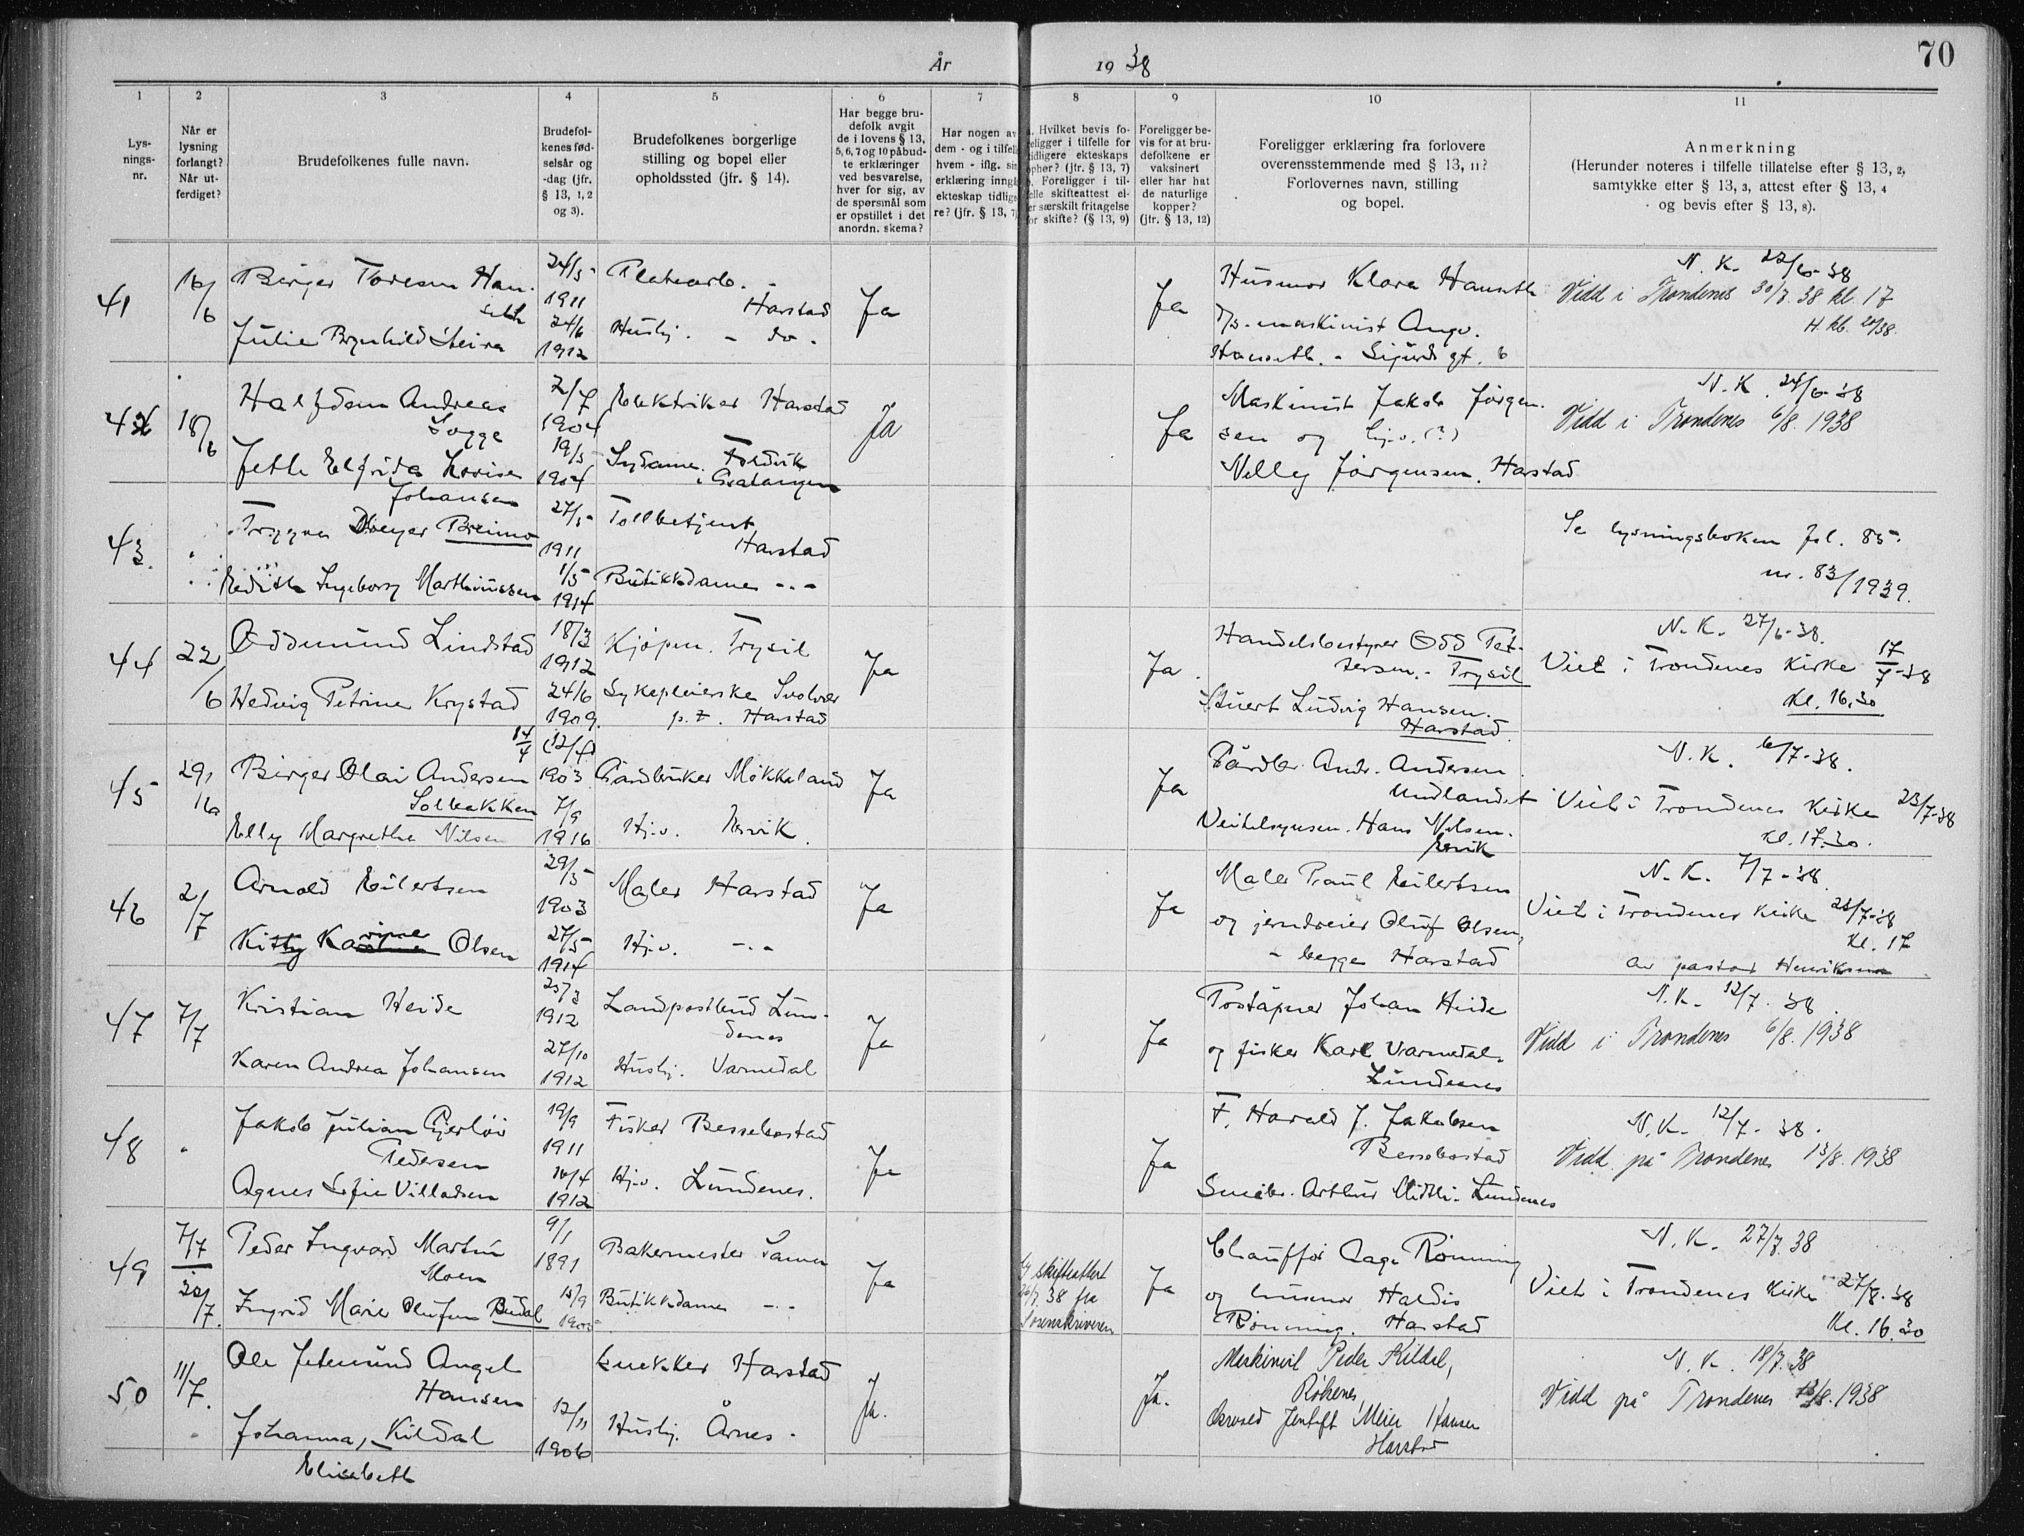 70
År 1938
1 2 3 4 5 6 7 8 9 10 11
Lys-
nings-
nr.
Når er
lysning
forlangt?
Når ut-
ferdiget?
Brudefolkenes fulle navn.
Brudefol-
kenes fød-
selsår og
-dag (jfr.
§ 13, 1, 2
og 3).
Brudefolkenes borgerlige
stilling og bopel eller
opholdssted (jfr. § 14).
Har begge bru-
defolk avgit
de i lovens § 13,
5, 6, 7 og 10 påbud-
te erklæringer
ved besvarelse,
hver for sig, av
de spørsmål som
er opstillet i det
anordn. skema?
Har nogen av
dem - og i tilfelle
hvem - iflg. sin
erklæring inngå
ekteskap tidlige
re? (jfr. § 13, 7)
Hvilket bevis fo-
religger i tilfelle for
tidligere ekteskaps
ophør? (jfr. § 13, 7)
Foreligger i til-
felle skifteattest el-
er særskilt fritagelse
for skifte? (§ 13, 9)
Foreligger be-
vis for at bru-
defolkene er
vaksinert
eller har hat
de naturlige
kopper?
(jfr. § 13, 12)
Foreligger erklæring fra forlovere
overensstemmende med § 13, 11?
Forlovernes navn, stilling
og bopel.
Anmerkning
(Herunder noteres i tilfelle tillatelse efter § 13, 2,
samtykke efter § 13, 3, attest efter § 13, 4
og bevis efter § 13, 8).
41
16/6
Birger Toresen Han-
seth
24/5
1911
Platearb. -
Harstad
Julie Brynhild Steira
24/6
1912
Husbj. - do -
Ja
Ja
Husmor Klara Hanseth
D/s-maskinist Angv.
Hanseth. - Sigurds gt. 6
N. K. 22/6-38
Vidd i Trondenes 30/7. 38 kl. 17
42
18/6
Halfdan Andreas
Sogge
2/7
1904
Elektriker Harstad
Jeth Elfrida Lovise
Johansen
19/5
1904
Sydame. Foldvik
i Gratangen
Ja
Ja
Maskinist Jakob Jørgen-
sen og hj.v. (?)
Nelly Jørgensen. Harstad
N. K. 24/6-38
Vidd i Trondenes 6/8. 1938
43.
Trygve Dreyer Breimo
27/5
1911
Tollbetjent
Harstad
Edith Ingeborg Marthinussen
1/5
1914
Butikkdame - " -
Se lysningsboken fol. 85.
nr. 83/1939.
44
22/6
Oddmund Lindstad
18/3
1912
Kjøpm. Trysil
Hedvig Petrine Krystad
24/6
1909.
Sykepleierske Svolvær
p. t. Harstad
Ja
Ja.
Handelsbestyrer Odd Pet-
tersen. - Trysil
Stuert Ludvig Hansen.
Harstad.
N. K. 27/6-38.
Viet i Trondenes kirke 17/7-38
kl. 16,30
45
29/6
Birger Olai Andersen
Solbakken
14/4 (12/4)
1903
Gårdbruker Møkkeland
Elly Margrethe Nilsen
7/9
1916
Hj.v. Ervik.
Ja
Ja
Gårdbr. Andr. Andersen
Undlandet
Hans Nilsen.
Ervik
N. K. 6/7-38.
Viet i Trondenes kirke 23/7-38
kl. 17.30.
46
2/7
Arnold Eilertsen
29/5
1903
Maler Harstad
Kitty Karine Olsen
27/5
1914
Hj.v. - " -
Ja
Ja
Maler Paul Eilertsen
og jerndreier Oluf Olsen,
- begge Harstad
N. K. 7/7-38.
Viet i Trondenes kirke 23/7-38
kl. 17
av pastor Henriksen
47
7/7
Kristian Heide
1912
Landpostbud Lun-
denes
Karen Andrea Johansen
27/10
1912
Husbj. Varmedal
Ja
Ja
Poståpner Johan Heide
og fisker Karl Varmedal.
Lundenes
N. K. 12/7. 38
Vidd i Trondenes 6/8. 1938
48
"
Jakob Julian Gjerløv
Pedersen
19/9
1911
Fisker Bessebostad
Agnes Sofie Villadsen
16/4
1912
Hj.v. Lundenes.
Ja
Ja
F. Harald J. Jakobsen
Bessebostad
Småbr. Arthur Midtli - Lundenes
N. K. 12/7- 38.
Vidd på Trondenes 13/8. 1938
49
7/7
30/7.
Peder Ingvard Martin
Moen
9/1
1891
Bakermester Sama
Ingrid Marie Olufine Budal
15/9
1905
Butikkdame - " -
Ja
skifteattest
26/7. 38 fra
Sorenskriveren
Ja
Chauffør Aage Rønning
og husmor Haldis
Rønning. Harstad
N. K. 27/7. 38
Viet i Trondenes kirke 27/8-38
Kl. 16.30
50
11/7.
Ole Jetmund Angel
Hansen
Snekker Harstad
Johanna, Kildal
Elisabeth
12/11
1906
Husbj. Årnes.
Ja.
Ja.
Maskinist Peder Kildal,
Røkenes
Osvald Jentoft Meier Hansen
Harstad
N. K. 18/7. 38
Vidd på Trondenes 13/8. 1938